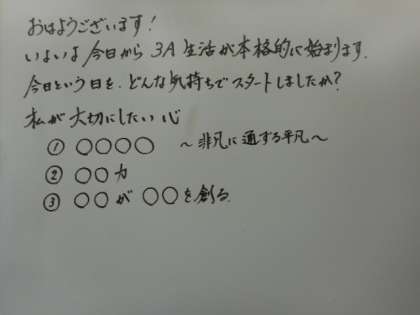 おはようございます！
いよいよ今日から3A生活が本格的に始まります.
今日という日を、どんな気持ちでスタートしましたか？
私が大切にしたい心
① ○○○○ ～非凡に通ずる平凡～
② ○○力
③ ○○が○○を創る.